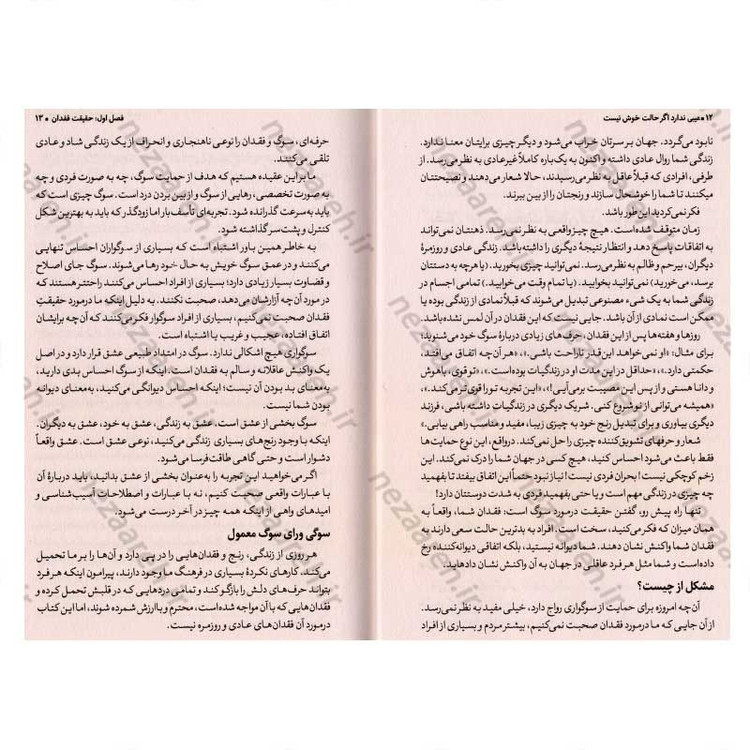 ۱۲ • عیبی ندارد اگر حالت خوش نیست
نابود می‌گردد. جهان بر سرتان خراب می‌شود و دیگر چیزی برایتان معنا ندارد.
زندگی شما روال عادی داشته و اکنون به یک‌باره کاملاً غیرعادی به نظر می‌رسد. از
طرفی، افرادی که قبلاً عاقل به نظر می‌رسیدند، حالا شعار می‌دهند و نصیحتتان
میکنند تا شما را خوشحال سازند و رنجتان را از بین ببرند.
فکر نمی‌کردید این‌طور باشد.
زمان متوقف شده است. هیچ چیز واقعی به نظر نمی‌رسد. ذهنتان نمی‌تواند
به اتفاقات پاسخ دهد و انتظار نتیجهٔ دیگری را داشته باشد. زندگی عادی و روزمرهٔ
دیگران، بیرحم و ظالم به نظر می‌رسد. نمی‌توانید چیزی بخورید. (یا هرچه به دستتان
برسد، می‌خورید) نمی‌توانید بخوابید. (یا تمام وقت می‌خوابید.) تمامی اجسام در
زندگی شما به یک شیء مصنوعی تبدیل می‌شوند که قبلاً نمادی از زندگی بوده یا
ممکن است نمادی از آن باشد. جایی نیست که این فقدان در آن لمس نشده باشد.
روزها و هفته‌ها پس از این فقدان، حرف‌های زیادی دربارهٔ سوگ خود می‌شنوید؛
برای مثال: «او نمی‌خواهد این‌قدر ناراحت باشی.»، «هر آن‌چه اتفاق می‌افتد،
حکمتی دارد.»، «حداقل در این مدت او در زندگیات بوده است.»، «تو قوی، باهوش
و دانا هستی و از پس این مصیبت برمی‌آیی!»، «این تجربه تو را قوی‌تر می‌کند.»،
«همیشه می‌توانی از نو شروع کنی. شریک دیگری در زندگیات داشته باشی، فرزند
دیگری بیاوری و برای تبدیل رنج خود به چیزی زیبا، مفید و مناسب راهی بیابی.»
شعار و حرفهای تشویق‌کننده چیزی را حل نمی‌کند. درواقع، این نوع حمایت‌ها
فقط باعث می‌شود احساس کنید، هیچ کسی در جهان شما را درک نمی‌کند. این
زخم کوچکی نیست! بحران فردی نیست! نیاز نبود حتماً این اتفاق بیفتد تا بفهمید
چه چیزی در زندگی مهم است و یا حتی بفهمید فردی به شدت دوستتان دارد!
تنها راه پیش رو، گفتن حقیقت درمورد سوگ است: فقدان شما، واقعاً به
همان میزان که فکر می‌کنید، سخت است. افراد به بدترین حالت سعی دارند به
فقدان شما واکنش نشان دهند. شما دیوانه نیستید، بلکه اتفاقی دیوانه‌کننده رخ
داده است و شما مثل هر فرد عاقلی در جهان به آن واکنش نشان داده‌اید.
مشکل از چیست؟
آن‌چه امروزه برای حمایت از سوگواری رواج دارد، خیلی مفید به نظر نمی‌رسد.
از آن جایی که ما درمورد فقدان صحبت نمی‌کنیم، بیشتر مردم و بسیاری از افراد
فصل اول: حقیقت فقدان • ۱۳
حرفه‌ای، سوگ و فقدان را نوعی ناهنجاری و انحراف از یک زندگی شاد و عادی
تلقی می‌کنند.
ما بر این عقیده هستیم که هدف از حمایت سوگ، چه به صورت فردی و چه
به صورت تخصصی، رهایی از سوگ و از بین بردن درد است. سوگ چیزی است که
باید به سرعت گذرانده شود. تجربه‌ای تأسف‌بار اما زودگذر که باید به بهترین شکل
کنترل و پشت سر گذاشته شود.
به خاطر همین باور اشتباه است که بسیاری از سوگواران احساس تنهایی
می‌کنند و در عمق سوگ خویش به حال خود رها می‌شوند. سوگ جای اصلاح
و قضاوت بسیار زیادی دارد؛ بسیاری از افراد احساس می‌کنند راحت‌تر هستند که
در مورد آن چه آزارشان می‌دهد، صحبت نکنند. به دلیل اینکه ما درمورد حقیقتِ
فقدان صحبت نمی‌کنیم، بسیاری از افراد سوگوار فکر می‌کنند که آن‌چه برایشان
اتفاق افتاده، عجیب و غریب یا اشتباه است.
سوگواری هیچ اشکالی ندارد. سوگ در امتداد طبیعی عشق قرار دارد و در اصل
یک واکنش عاقلانه و سالم به فقدان است. اینکه از سوگ احساس بدی دارید،
به‌معنای بد بودن آن نیست؛ اینکه احساس دیوانگی می‌کنید، به‌معنای دیوانه
بودن شما نیست.
سوگ بخشی از عشق است. عشق به زندگی، عشق به خود، عشق به دیگران.
اینکه با وجود رنج‌های بسیاری زندگی می‌کنید، نوعی عشق است. عشق واقعاً
دشوار است و حتی گاهی طاقت‌فرسا می‌شود.
اگر می‌خواهید این تجربه را به‌عنوان بخشی از عشق بدانید، باید دربارهٔ آن
با عبارات واقعی صحبت کنیم، نه با عبارات و اصطلاحات آسیب‌شناسی و
امیدهای واهی از اینکه همه چیز در آخر درست می‌شود.
سوگی ورای سوگ معمول
هر روزی از زندگی، رنج و فقدان‌هایی را در پی دارد و آن‌ها را بر ما تحمیل
می‌کند. کارهای نکردهٔ بسیاری در فرهنگ ما وجود دارند، پیرامون اینکه هر فرد
بتواند حرف‌های دلش را بازگو کند و تمامی دردهایی که در قلبش تحمل کرده و
فقدان‌هایی که با آن مواجه شده است، محترم و باارزش شمرده شوند، اما این کتاب
درمورد آن فقدان‌های عادی و روزمره نیست.
nezaareh.ir